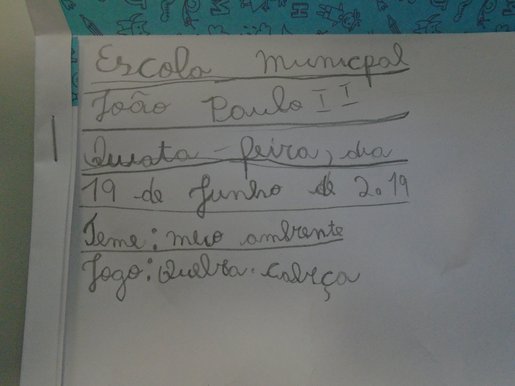 Escola Municpal
João Paulo II
Quiata-feira, dia
19 de Junho de 2019
Teme: meio ambiente
Jogo: Quebra-cabeça